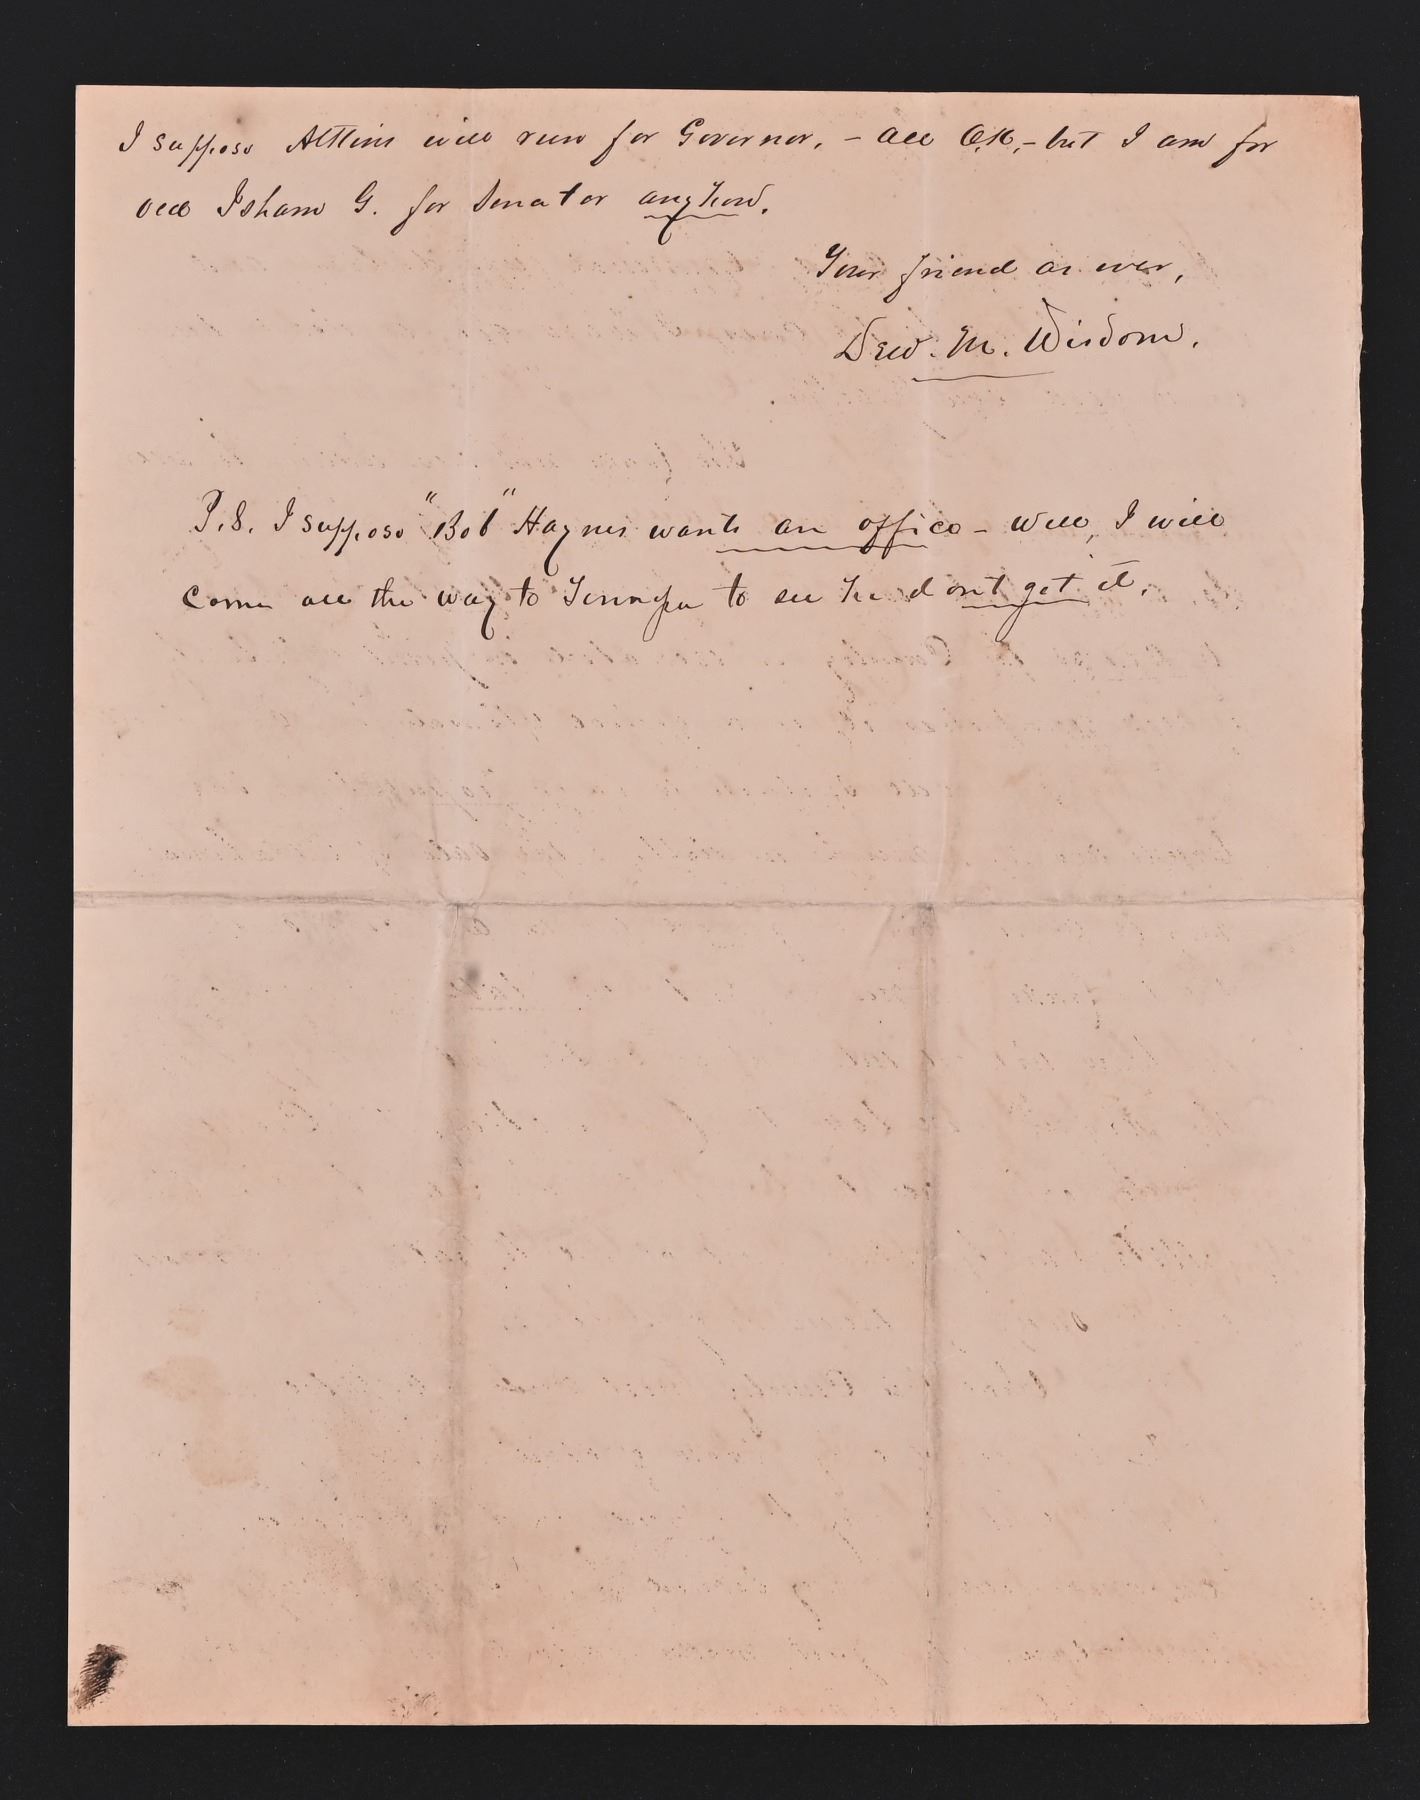 I suppose Atkins will run for Governor, - all O.K, - but I am for
old Isham G. for Senator anyhow.
Your friend as ever,
Dew. M. Wisdom.
P.S. I suppose "Bob" Haynes wants an office - Well, I will
come all the way to Tennessee to see he dont get it.